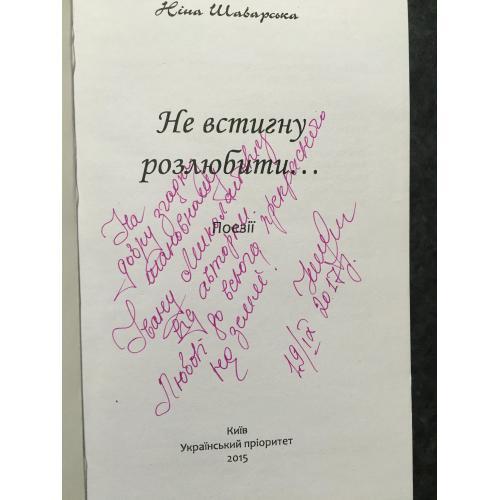 Ніна Шаварська
Не встигну
розлюбити...
Поезії
На
добру згадку
шановному
Івану Миколайовичу
від автора.
Любові до всього прекрасного
на землі!
19/IX 2017р.
Київ
Український пріоритет
2015